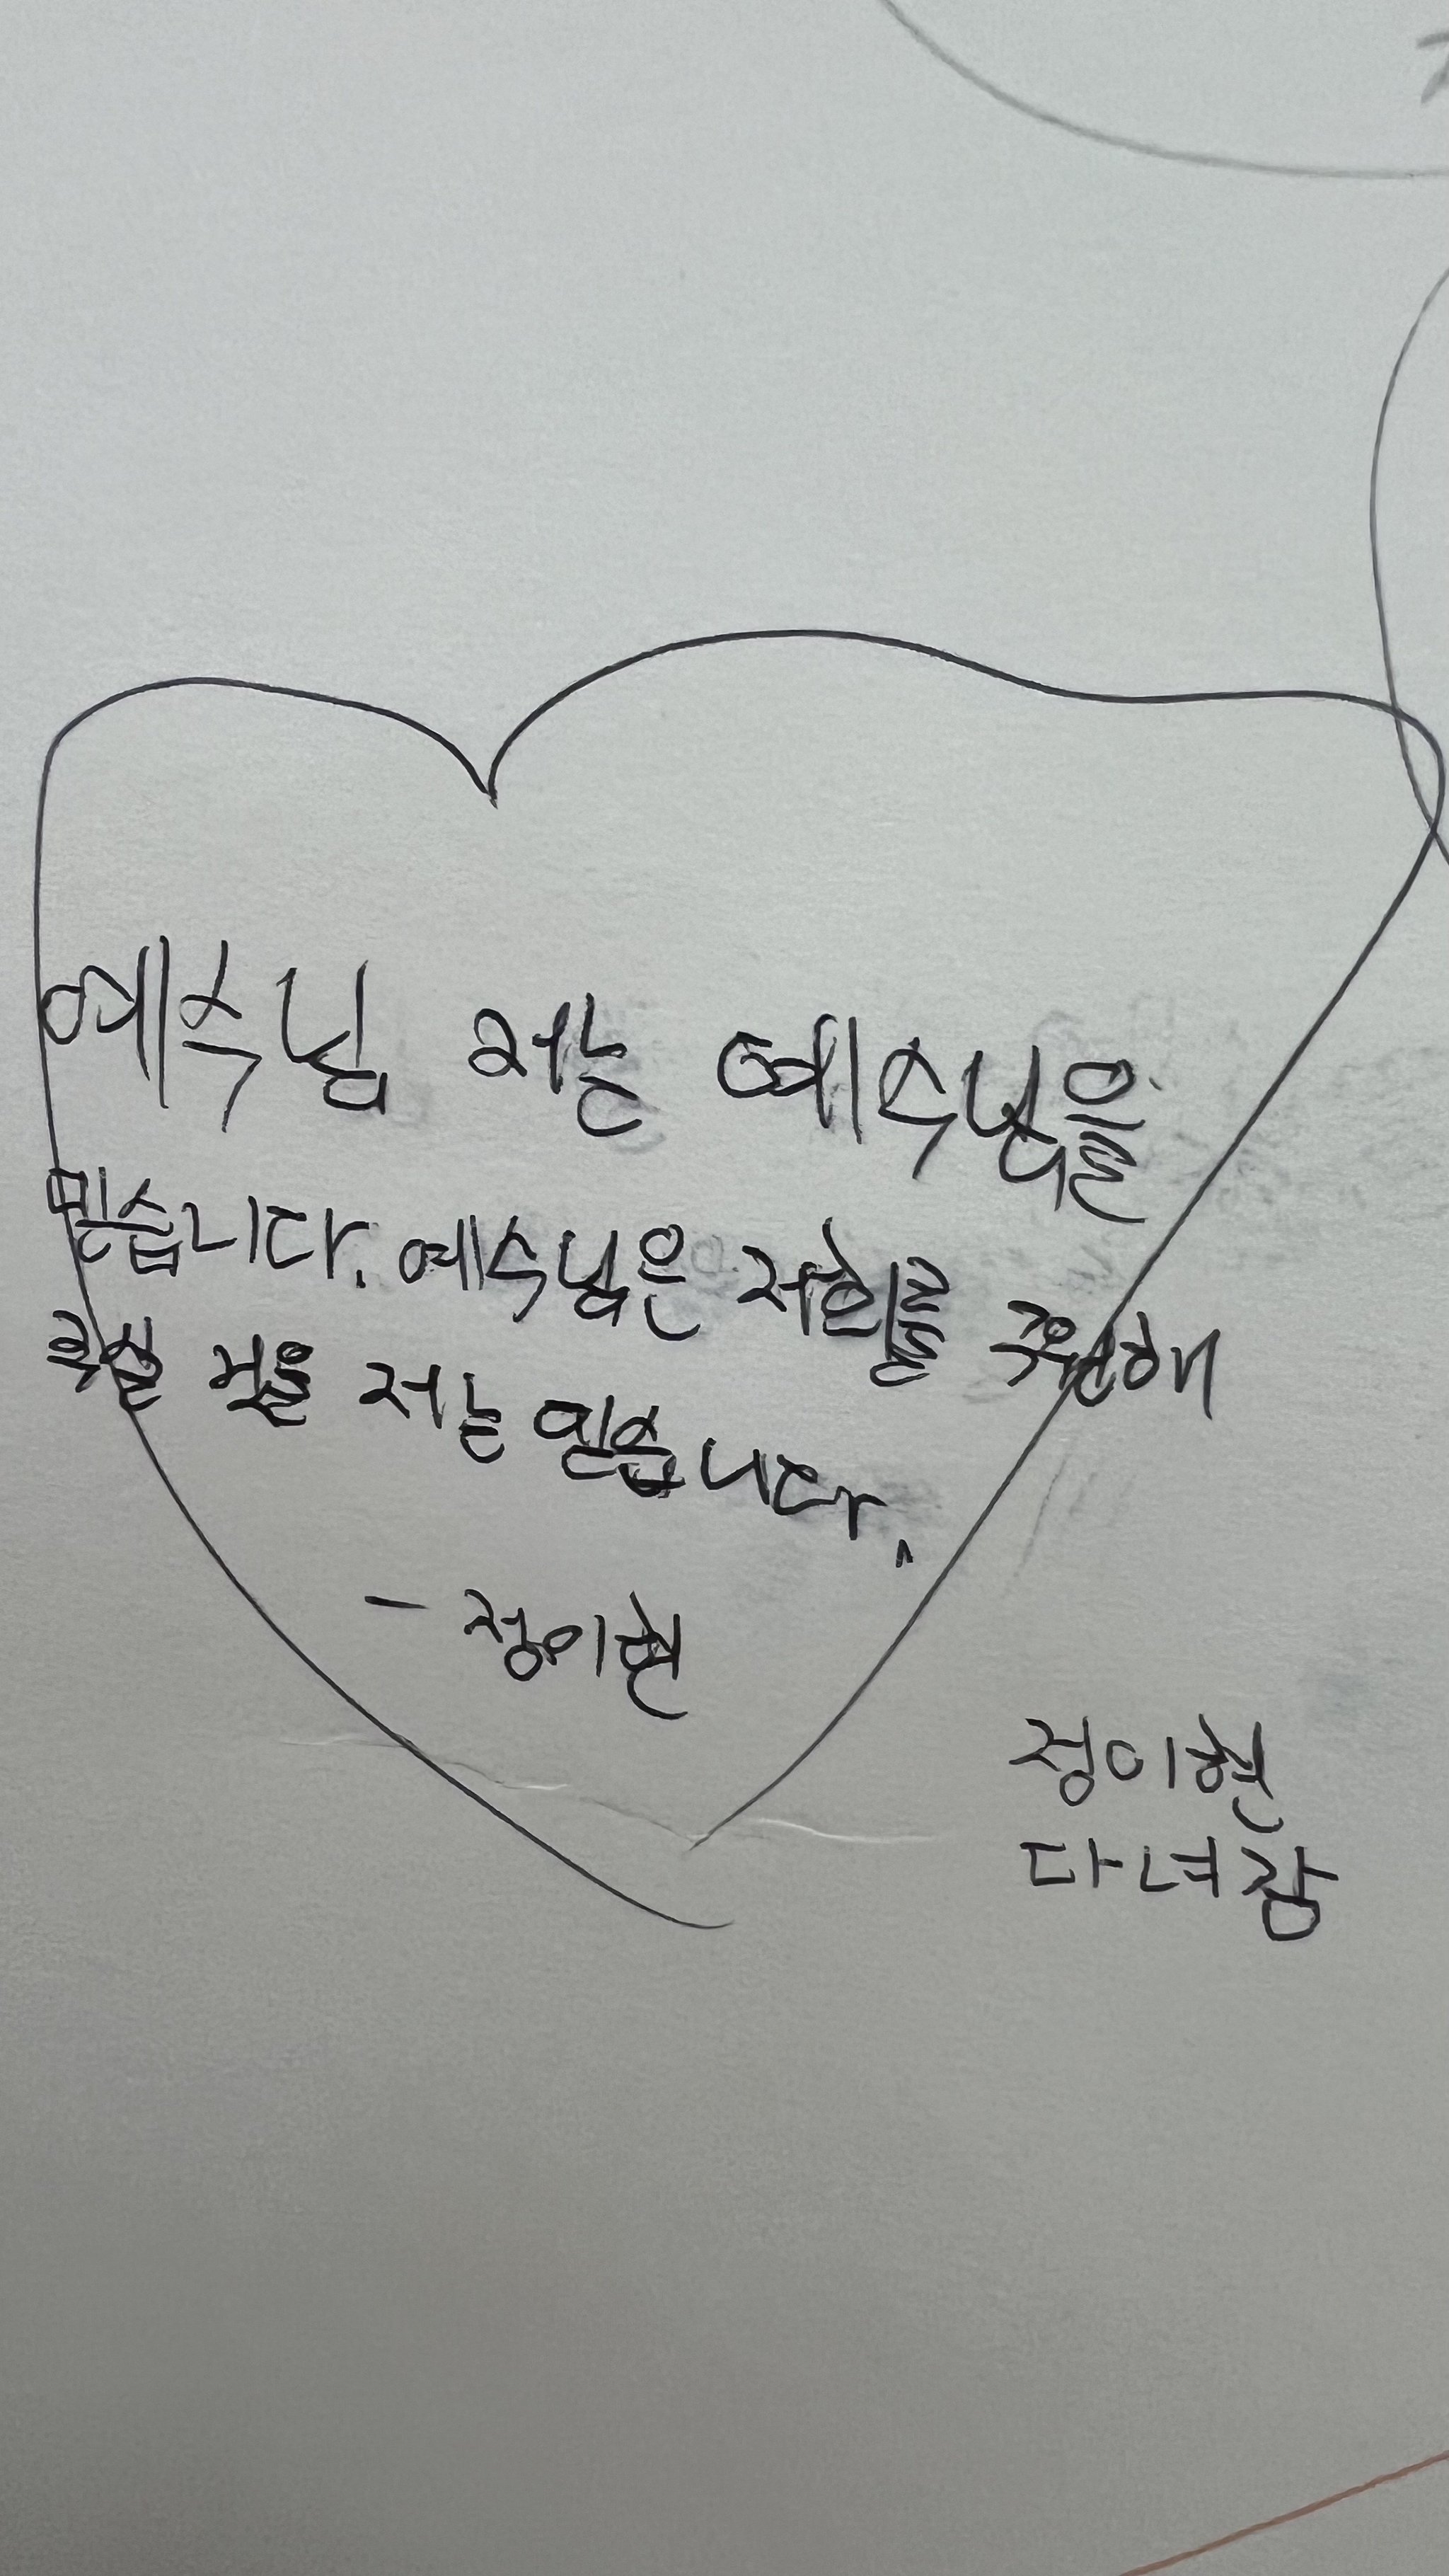 예수님 저는 예수님을
믿습니다. 예수님은 저희를 구원해
주실 것을 저는 믿습니다.
- 정이현
정이현
다녀감